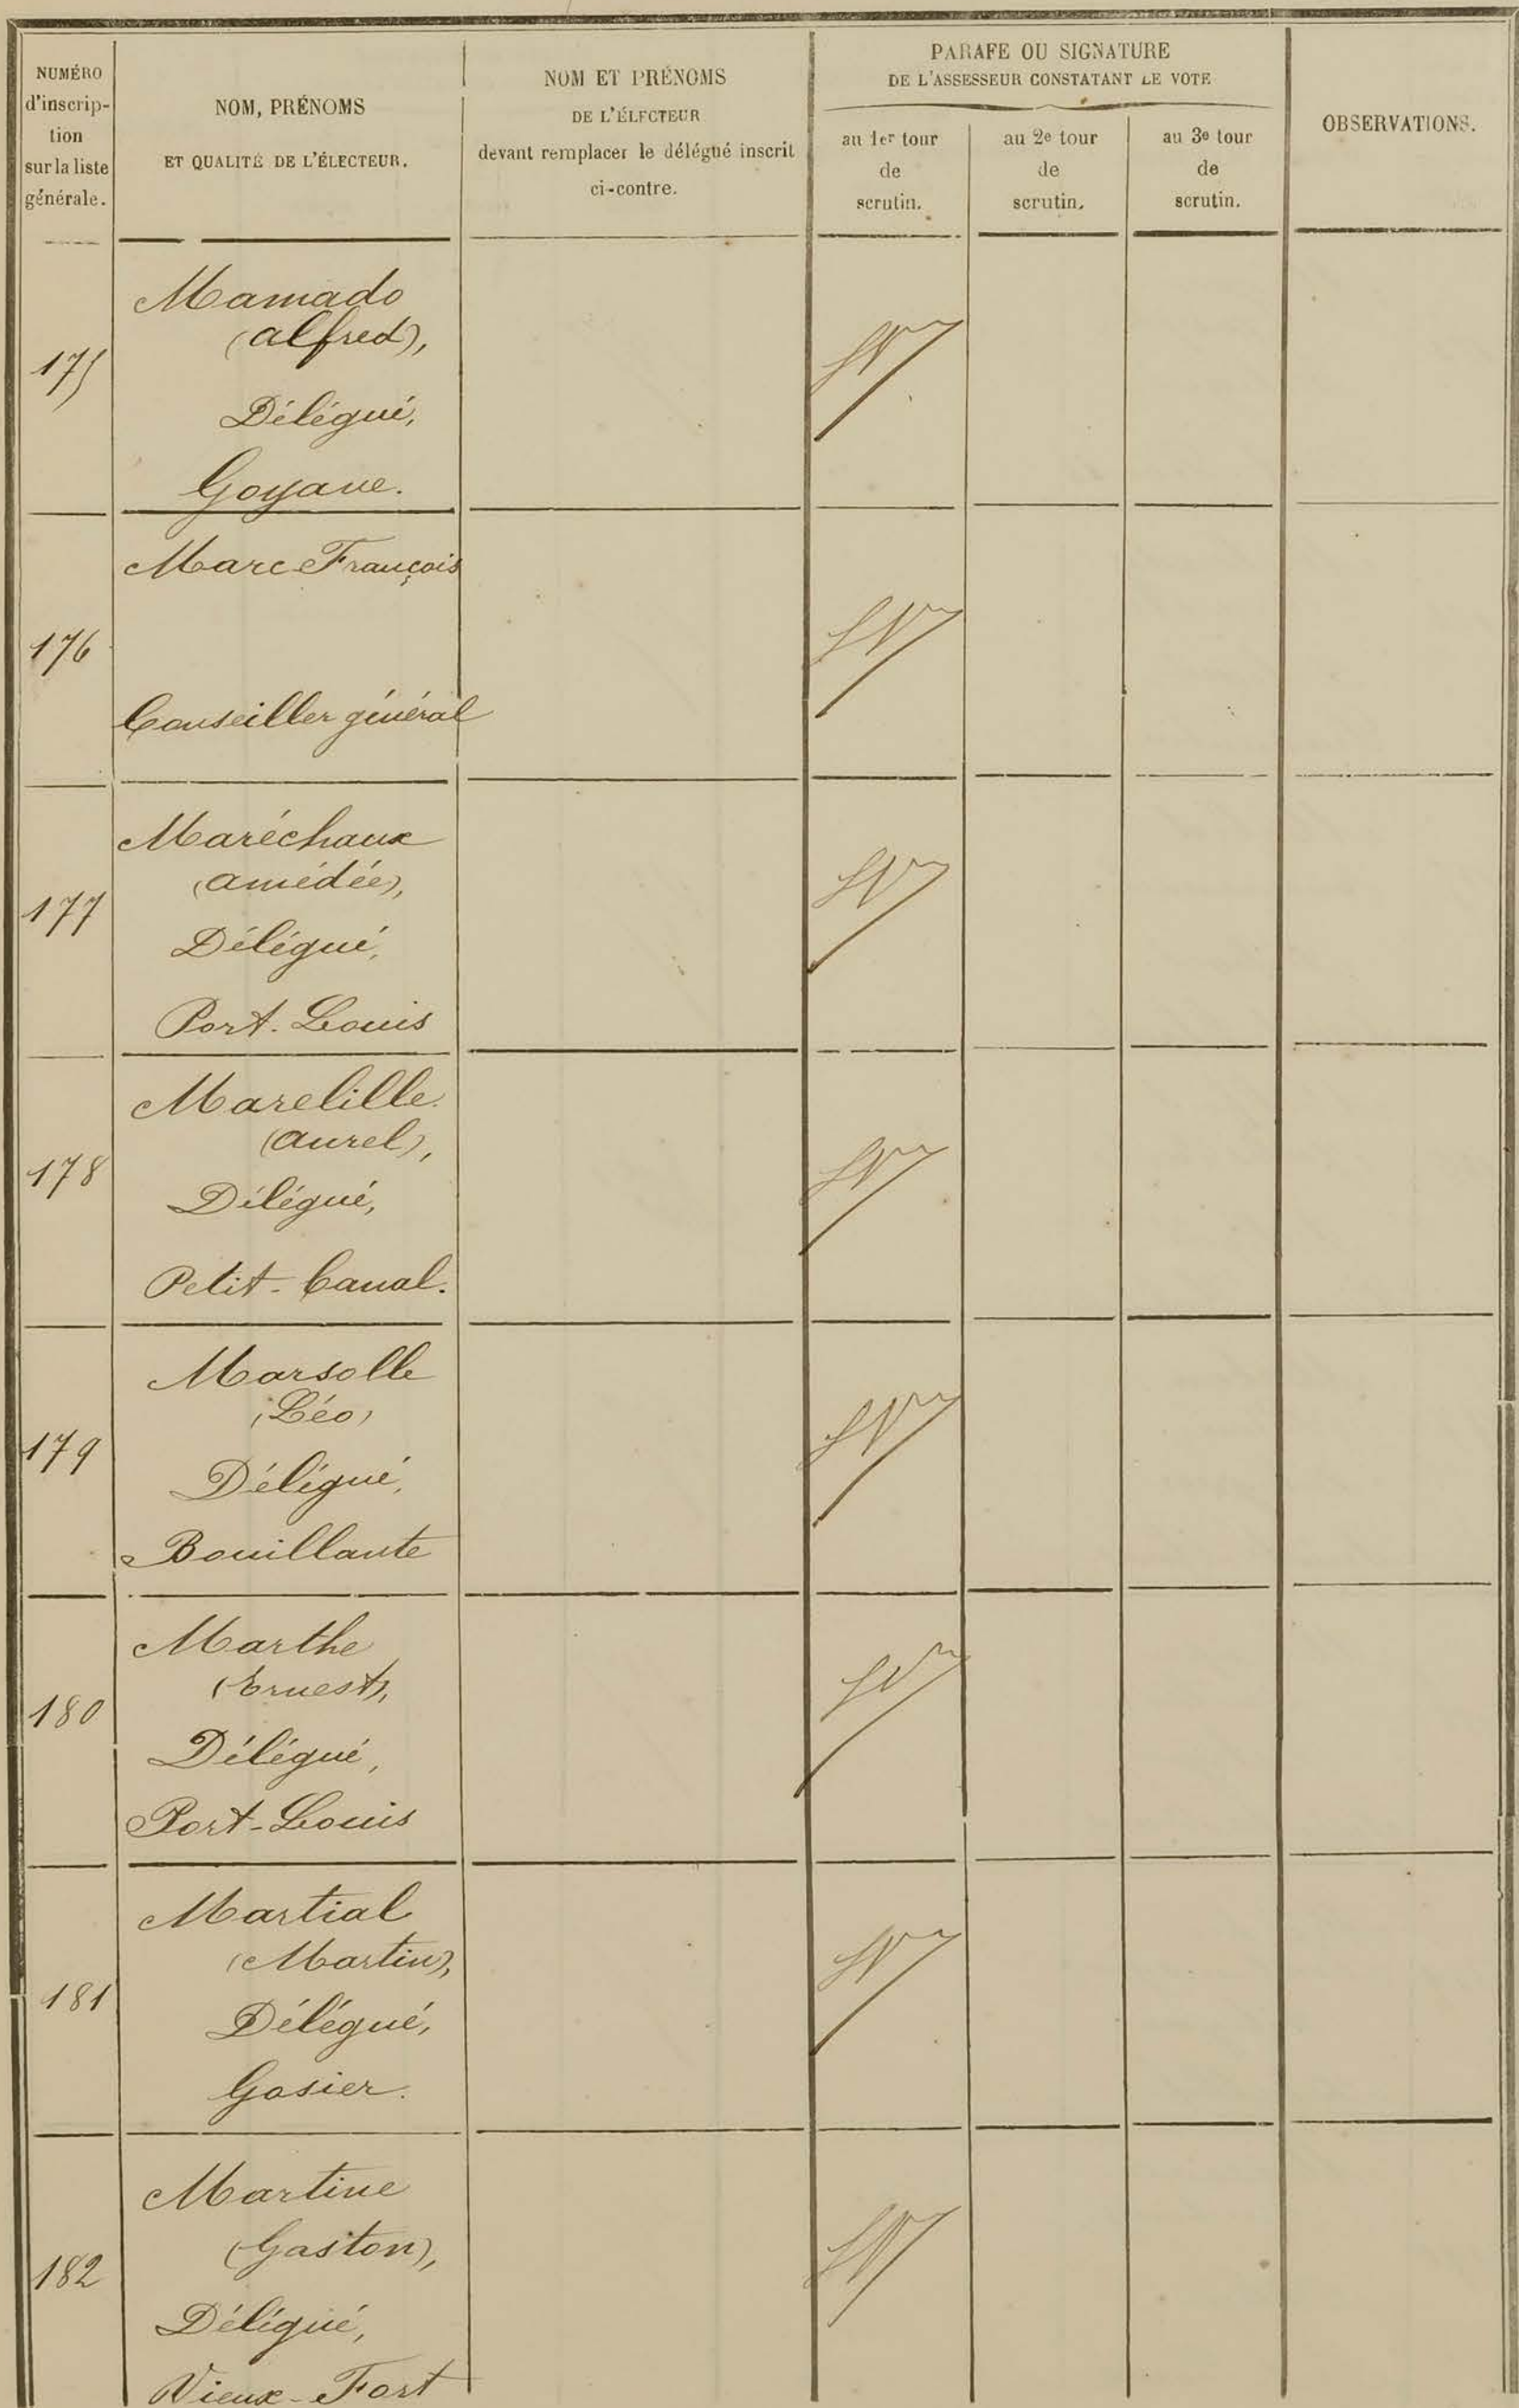 NUMÉRO
d'inscrip-
tion
sur la liste
générale.
NOM, PRÉNOMS
ET QUALITÉ DE L'ÉLECTEUR.
NOM ET PRÉNOMS
DE L'ÉLECTEUR
devant remplacer le délégué inscrit
ci-contre.
PARAFE OU SIGNATURE
DE L'ASSESSEUR CONSTATANT LE VOTE
au 1er tour
de
scrutin.
au 2e tour
de
scrutin.
au 3e tour
de
scrutin.
OBSERVATIONS.
175
Mamado
(Alfred),
Délégué,
Goyave.
176
Marc-François
Conseiller général
177
Maréchaux
(Amédée),
Délégué,
Port-Louis
178
Marelille
(Aurel),
Délégué,
Petit-Canal.
179
Marsolle
(Léo)
Délégué,
Bouillante
180
Marthe
(Ernest),
Délégué,
Port-Louis
181
Martial
(Martin),
Délégué,
Gosier.
182
Martine
(Gaston),
Délégué,
Vieux-Fort